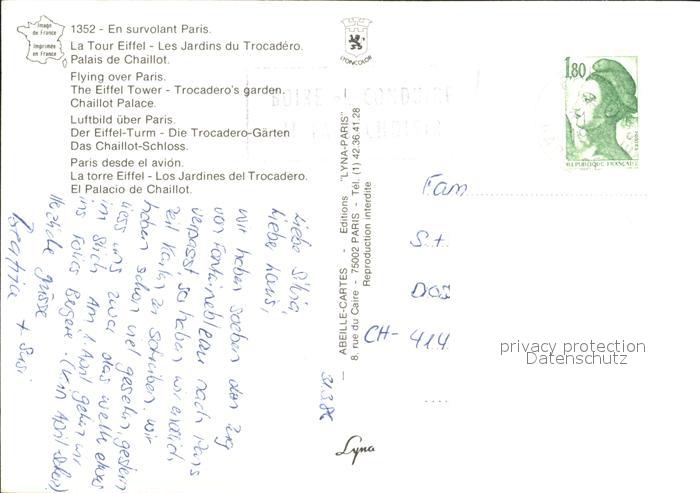 Image
de France
Imprimée
en France
1352 - En survolant Paris.
La Tour Eiffel - Les Jardins du Trocadéro.
Palais de Chaillot.
Flying over Paris.
The Eiffel Tower - Trocadero's garden.
Chaillot Palace.
Luftbild über Paris.
Der Eiffel-Turm - Die Trocadero-Gärten
Das Chaillot-Schloss.
Paris desde el avión.
La torre Eiffel - Los Jardines del Trocadero.
El Palacio de Chaillot.
Liebe Silvia,
Liebe Hans,
wir haben soeben den Zug
von Fontainebleau nach Paris
verpasst, so haben wir endlich
Zeit Karten zu schreiben. Wir
haben schon viel gesehn, gestern
liess uns zwar das Wetter etwas
im Stich. Am 1. April gehen wir
ins Folies Bergère. (Kein April-Scherz)
Herzliche Grüsse
+ Susi
31.3.86
LYONCOLOR
ABEILLE-CARTES - Editions "LYNA-PARIS"
8, rue du Caire - 75002 PARIS - Tél. (1) 42.36.41.28
Reproduction interdite
Lyna
BOIRE OU CONDUIRE
IL FAUT CHOISIR
1,80
REPUBLIQUE FRANÇAISE
Fam
St.
CH- 414
privacy protection
Datenschutz